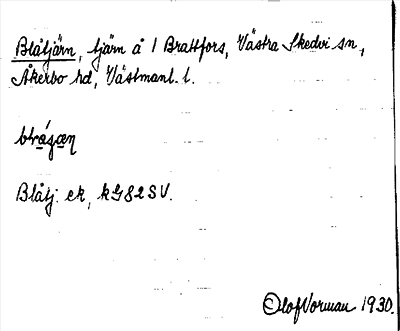 Blåtjärn, tjärn å 1 Brattfors, Västra Skedvi sn,
Åkerbo hd, Västmanl. l.
Blåtj. ek, kG82SV.
Olof Norman 1930.